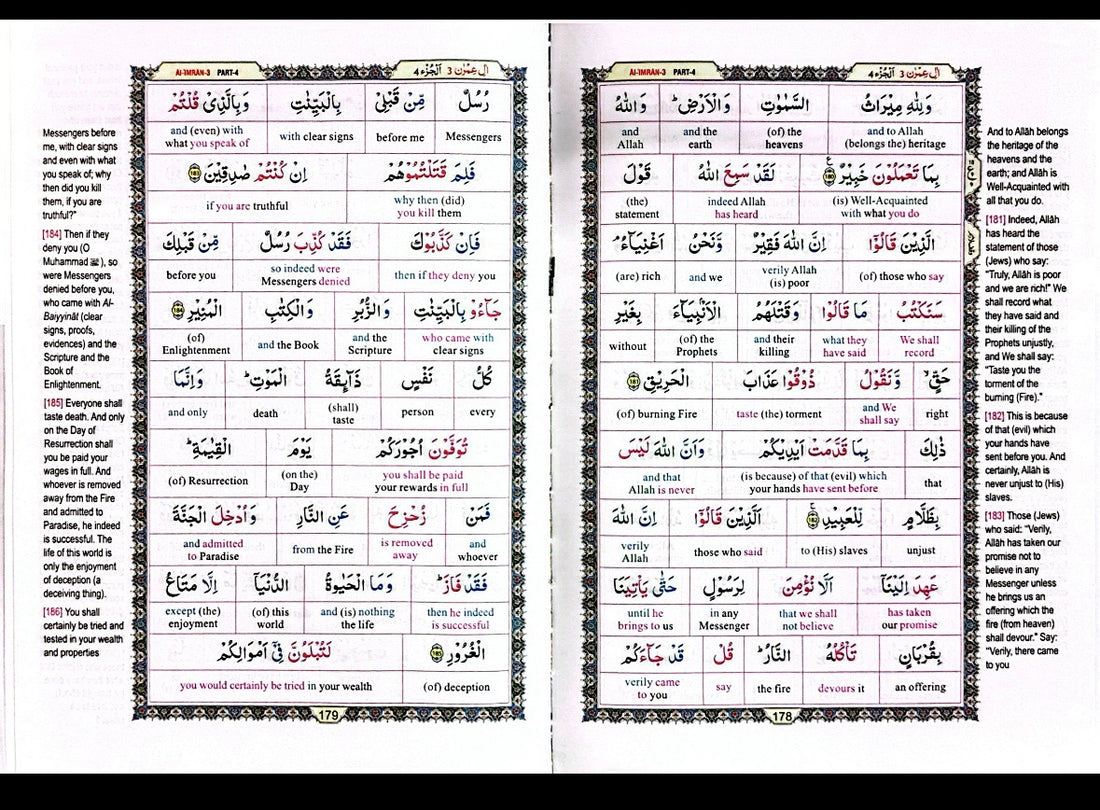 Al-'IMRAN-3 PART-4
اٰلِ عِمْرٰن 3 اَلْجُزْء 4
وَلِلّٰهِ مِيْرَاثُ السَّمٰوٰتِ وَالْاَرْضِ ؕ وَاللّٰهُ
and to Allah (belongs the) heritage (of) the heavens and the earth and Allah
بِمَا تَعْمَلُوْنَ خَبِيْرٌ ﴿180﴾ لَقَدْ سَمِعَ اللّٰهُ قَوْلَ
(is) Well-Acquainted with what you do indeed Allah has heard (the) statement
الَّذِيْنَ قَالُوْۤا اِنَّ اللّٰهَ فَقِيْرٌ وَّنَحْنُ اَغْنِيَآءُ ۘ
(of) those who say verily Allah (is) poor and we (are) rich
سَنَكْتُبُ مَا قَالُوْا وَقَتْلَهُمُ الْاَنْۢبِيَآءَ بِغَيْرِ
We shall record what they have said and their killing (of) the Prophets without
حَقٍّ ۙ وَّنَقُوْلُ ذُوْقُوْا عَذَابَ الْحَرِيْقِ ﴿181﴾
right and We shall say taste (the) torment (of) burning Fire
ذٰلِكَ بِمَا قَدَّمَتْ اَيْدِيْكُمْ وَاَنَّ اللّٰهَ لَيْسَ
that (is because) of that (evil) which your hands have sent before and that Allah is never
بِظَلَّامٍ لِّلْعَبِيْدِ ﴿182﴾ اَلَّذِيْنَ قَالُوْۤا اِنَّ اللّٰهَ
unjust to (His) slaves those who said verily Allah
عَهِدَ اِلَيْنَاۤ اَلَّا نُؤْمِنَ لِرَسُوْلٍ حَتّٰى يَاْتِيَنَا
has taken our promise that we shall not believe in any Messenger until he brings to us
بِقُرْبَانٍ تَاْكُلُهُ النَّارُ ؕ قُلْ قَدْ جَآءَكُمْ
an offering devours it the fire say verily came to you
178
And to Allâh belongs
the heritage of the
heavens and the
earth; and Allâh is
Well-Acquainted with
all that you do.
[181] Indeed, Allâh
has heard the
statement of those
(Jews) who say:
"Truly, Allâh is poor
and we are rich!" We
shall record what
they have said and
their killing of the
Prophets unjustly,
and We shall say:
"Taste you the
torment of the
burning (Fire)."
[182] This is because
of that (evil) which
your hands have
sent before you. And
certainly, Allâh is
never unjust to (His)
slaves.
[183] Those (Jews)
who said: "Verily,
Allâh has taken our
promise not to
believe in any
Messenger unless
he brings us an
offering which the
fire (from heaven)
shall devour." Say:
"Verily, there came
to you
Al-'IMRAN-3 PART-4
اٰلِ عِمْرٰن 3 اَلْجُزْء 4
رُسُلٌ مِّنْ قَبْلِىْ بِالْبَيِّنٰتِ وَبِالَّذِىْ قُلْتُمْ
Messengers before me with clear signs and (even) with what you speak of
فَلِمَ قَتَلْتُمُوْهُمْ اِنْ كُنْتُمْ صٰدِقِيْنَ ﴿183﴾
why then (did) you kill them if you are truthful
فَاِنْ كَذَّبُوْكَ فَقَدْ كُذِّبَ رُسُلٌ مِّنْ قَبْلِكَ
then if they deny you so indeed were Messengers denied before you
جَآءُوْ بِالْبَيِّنٰتِ وَالزُّبُرِ وَالْكِتٰبِ الْمُنِيْرِ ﴿184﴾
who came with clear signs and the Scripture and the Book (of) Enlightenment
كُلُّ نَفْسٍ ذَآئِقَةُ الْمَوْتِ ؕ وَاِنَّمَا
every person (shall) taste death and only
تُوَفَّوْنَ اُجُوْرَكُمْ يَوْمَ الْقِيٰمَةِ ؕ
you shall be paid your rewards in full (on the) Day (of) Resurrection
فَمَنْ زُحْزِحَ عَنِ النَّارِ وَاُدْخِلَ الْجَنَّةَ
and whoever is removed away from the Fire and admitted to Paradise
فَقَدْ فَازَ ؕ وَمَا الْحَيٰوةُ الدُّنْيَاۤ اِلَّا مَتَاعُ
then he indeed is successful and (is) nothing the life (of) this world except (the) enjoyment
الْغُرُوْرِ ﴿185﴾ لَتُبْلَوُنَّ فِىْۤ اَمْوَالِكُمْ
(of) deception you would certainly be tried in your wealth
179
Messengers before
me, with clear signs
and even with what
you speak of; why
then did you kill
them, if you are
truthful?"
[184] Then if they
deny you (O
Muhammad ﷺ), so
were Messengers
denied before you,
who came with Al-
Baiyyinât (clear
signs, proofs,
evidences) and the
Scripture and the
Book of
Enlightenment.
[185] Everyone shall
taste death. And only
on the Day of
Resurrection shall
you be paid your
wages in full. And
whoever is removed
away from the Fire
and admitted to
Paradise, he indeed
is successful. The
life of this world is
only the enjoyment
of deception (a
deceiving thing).
[186] You shall
certainly be tried and
tested in your wealth
and properties